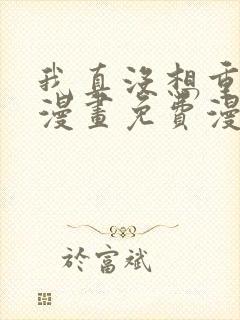 我真没想重
漫畫免費漫
於富斌